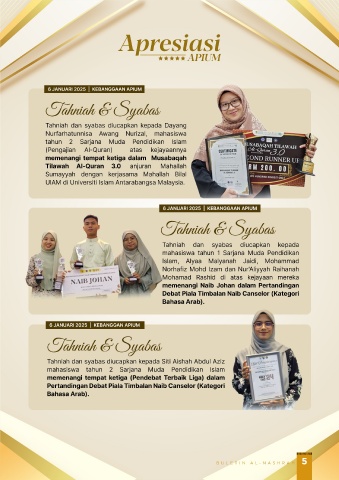 Apresiasi
APIUM
6 JANUARI 2025 | KEBANGGAAN APIUM
Tahniah & Syabas
Tahniah dan syabas diucapkan kepada Dayang
Nurfarhatunnisa Awang Nurizal, mahasiswa
tahun 2 Sarjana Muda Pendidikan Islam
(Pengajian Al-Quran) atas kejayaannya
memenangi tempat ketiga dalam Musabaqah
Tilawah Al-Quran 3.0 anjuran Mahallah
Sumayyah dengan kerjasama Mahallah Bilal
UIAM di Universiti Islam Antarabangsa Malaysia.
MUSABAQAH TILAWAH
Al-Quran 3.0
SECOND RUNNER UP
RM 200.00
6 JANUARI 2025 | KEBANGGAAN APIUM
Tahniah & Syabas
Tahniah dan syabas diucapkan kepada
mahasiswa tahun 1 Sarjana Muda Pendidikan
Islam, Alyaa Maiyanah Jaidi, Mohammad
Norhafiz Mohd Izam dan Nur'Aliyyah Raihanah
Mohamad Rashid di atas kejayaan mereka
memenangi Naib Johan dalam Pertandingan
Debat Piala Timbalan Naib Canselor (Kategori
Bahasa Arab).
NAIB JOHAN
6 JANUARI 2025 | KEBANGGAAN APIUM
Tahniah & Syabas
Tahniah dan syabas diucapkan kepada Siti Aishah Abdul Aziz
mahasiswa tahun 2 Sarjana Muda Pendidikan Islam
memenangi tempat ketiga (Pendebat Terbaik Liga) dalam
Pertandingan Debat Piala Timbalan Naib Canselor (Kategori
Bahasa Arab).
BULETIN AL-NASHRAH
5